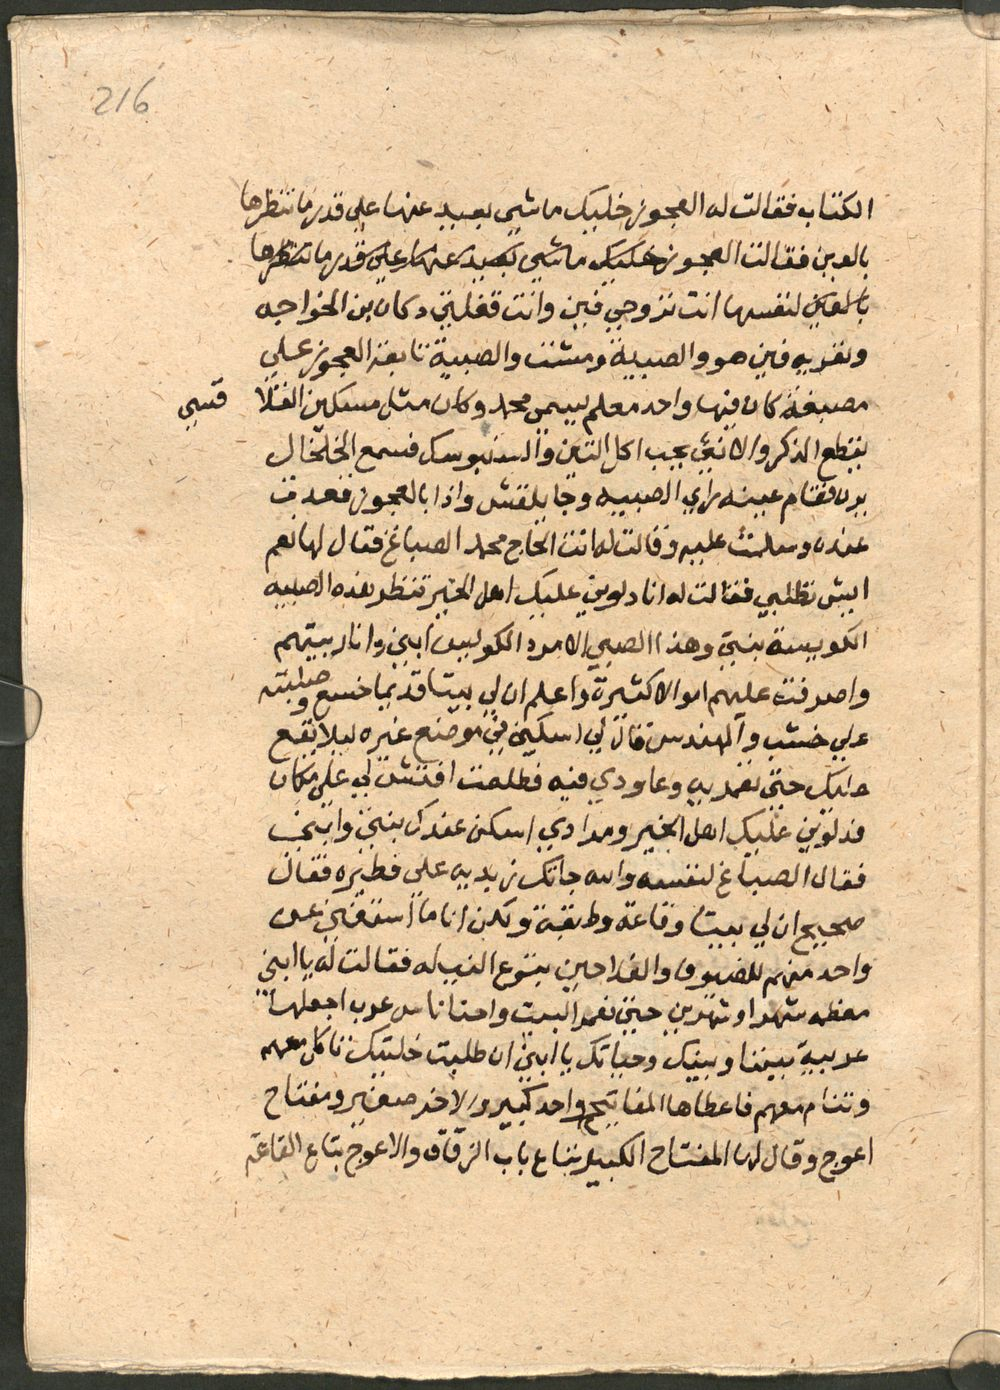 216
الكتاب فقالت له العجوز خليك ماشي بعيد عنها على قدر ما تنظرها
بالعين فقالت العجوز خليك ماشي بعيد عنها على قدر ما تنظرها
بالعين لنفسها انت تزوجي فين وانت قفلتي دكان بن الخواجه
وتعريه فين هو والصبية ومشت والصبية تابعة العجوز على
مصبغة كان فيها واحد معلم يسمى محمد وكان مثل سكين القلا قسي
يقطع الذكر والانثى يحب اكل التين والسنبوسك فسمع الخلخال
يرن فقام عينه راي الصبيه وجا بلقش واذا بالعجوز قعدت
عنده وسلمت عليه وقالت له انت الحاج محمد الصباغ فقال لها نعم
ايش تطلبي فقالت له انا دلوني عليك اهل الخير تنظر هذه الصبيه
الكويسة بنتي وهذا الصبي الامرد الكويس ابني وانا ربيتهم
واصرفت عليهم اموالا كثيرة واعلم ان لي بيتا قديما خسع وصلبته
على خشب والمهندس قال لي اسكني في موضع غيره ليلا يقع
عليك حتى تعمريه وعاودي فيه فطلعت افتش لي على مكان
فدلوني عليك اهل الخير ومرادي اسكن عندك بنتي وابني
فقال الصباغ لنفسه والله جاتك زبديه على فطيره فقال
صحيح ان لي بيتا وقاعة وطبقة ولكن انا ما استغني عن
واحد منهم للضيوف والفلاحين بتوع النيله فقالت له يا ابني
معظمه شهر او شهرين حتى نعمر البيت واحنا ناس غرب اجعلها
عربية بيننا وبينك وحياتك يا ابني ان طلبت خليتك تاكل معهم
وتنام معهم فاعطاها المفاتيح واحد كبير والاخر صغير ومفتاح
اعوج وقال لها المفتاح الكبير بتاع باب الزقاق والاعوج بتاع القاعة